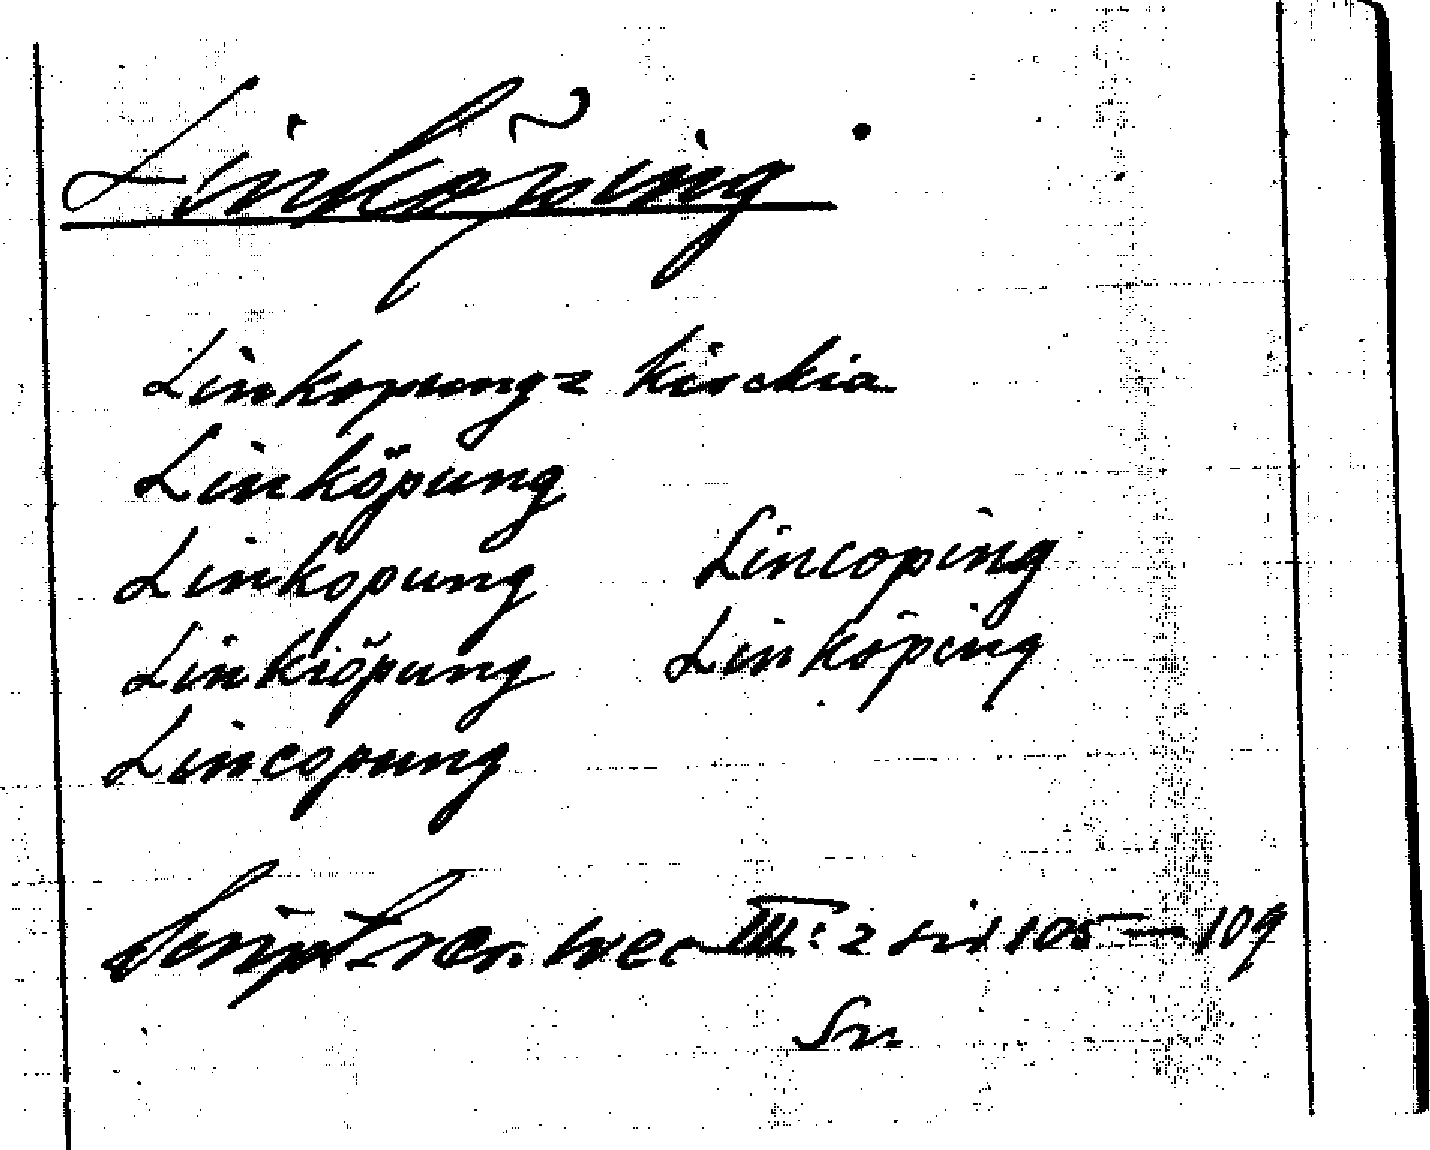 Linköping
Linkopungz Kirckia
Linköpung
Linkopung
Lincoping
Linkiöpung
Linköping
Lincopung
Script. rer. svec III: 2 sid 105 - 109
Sn.